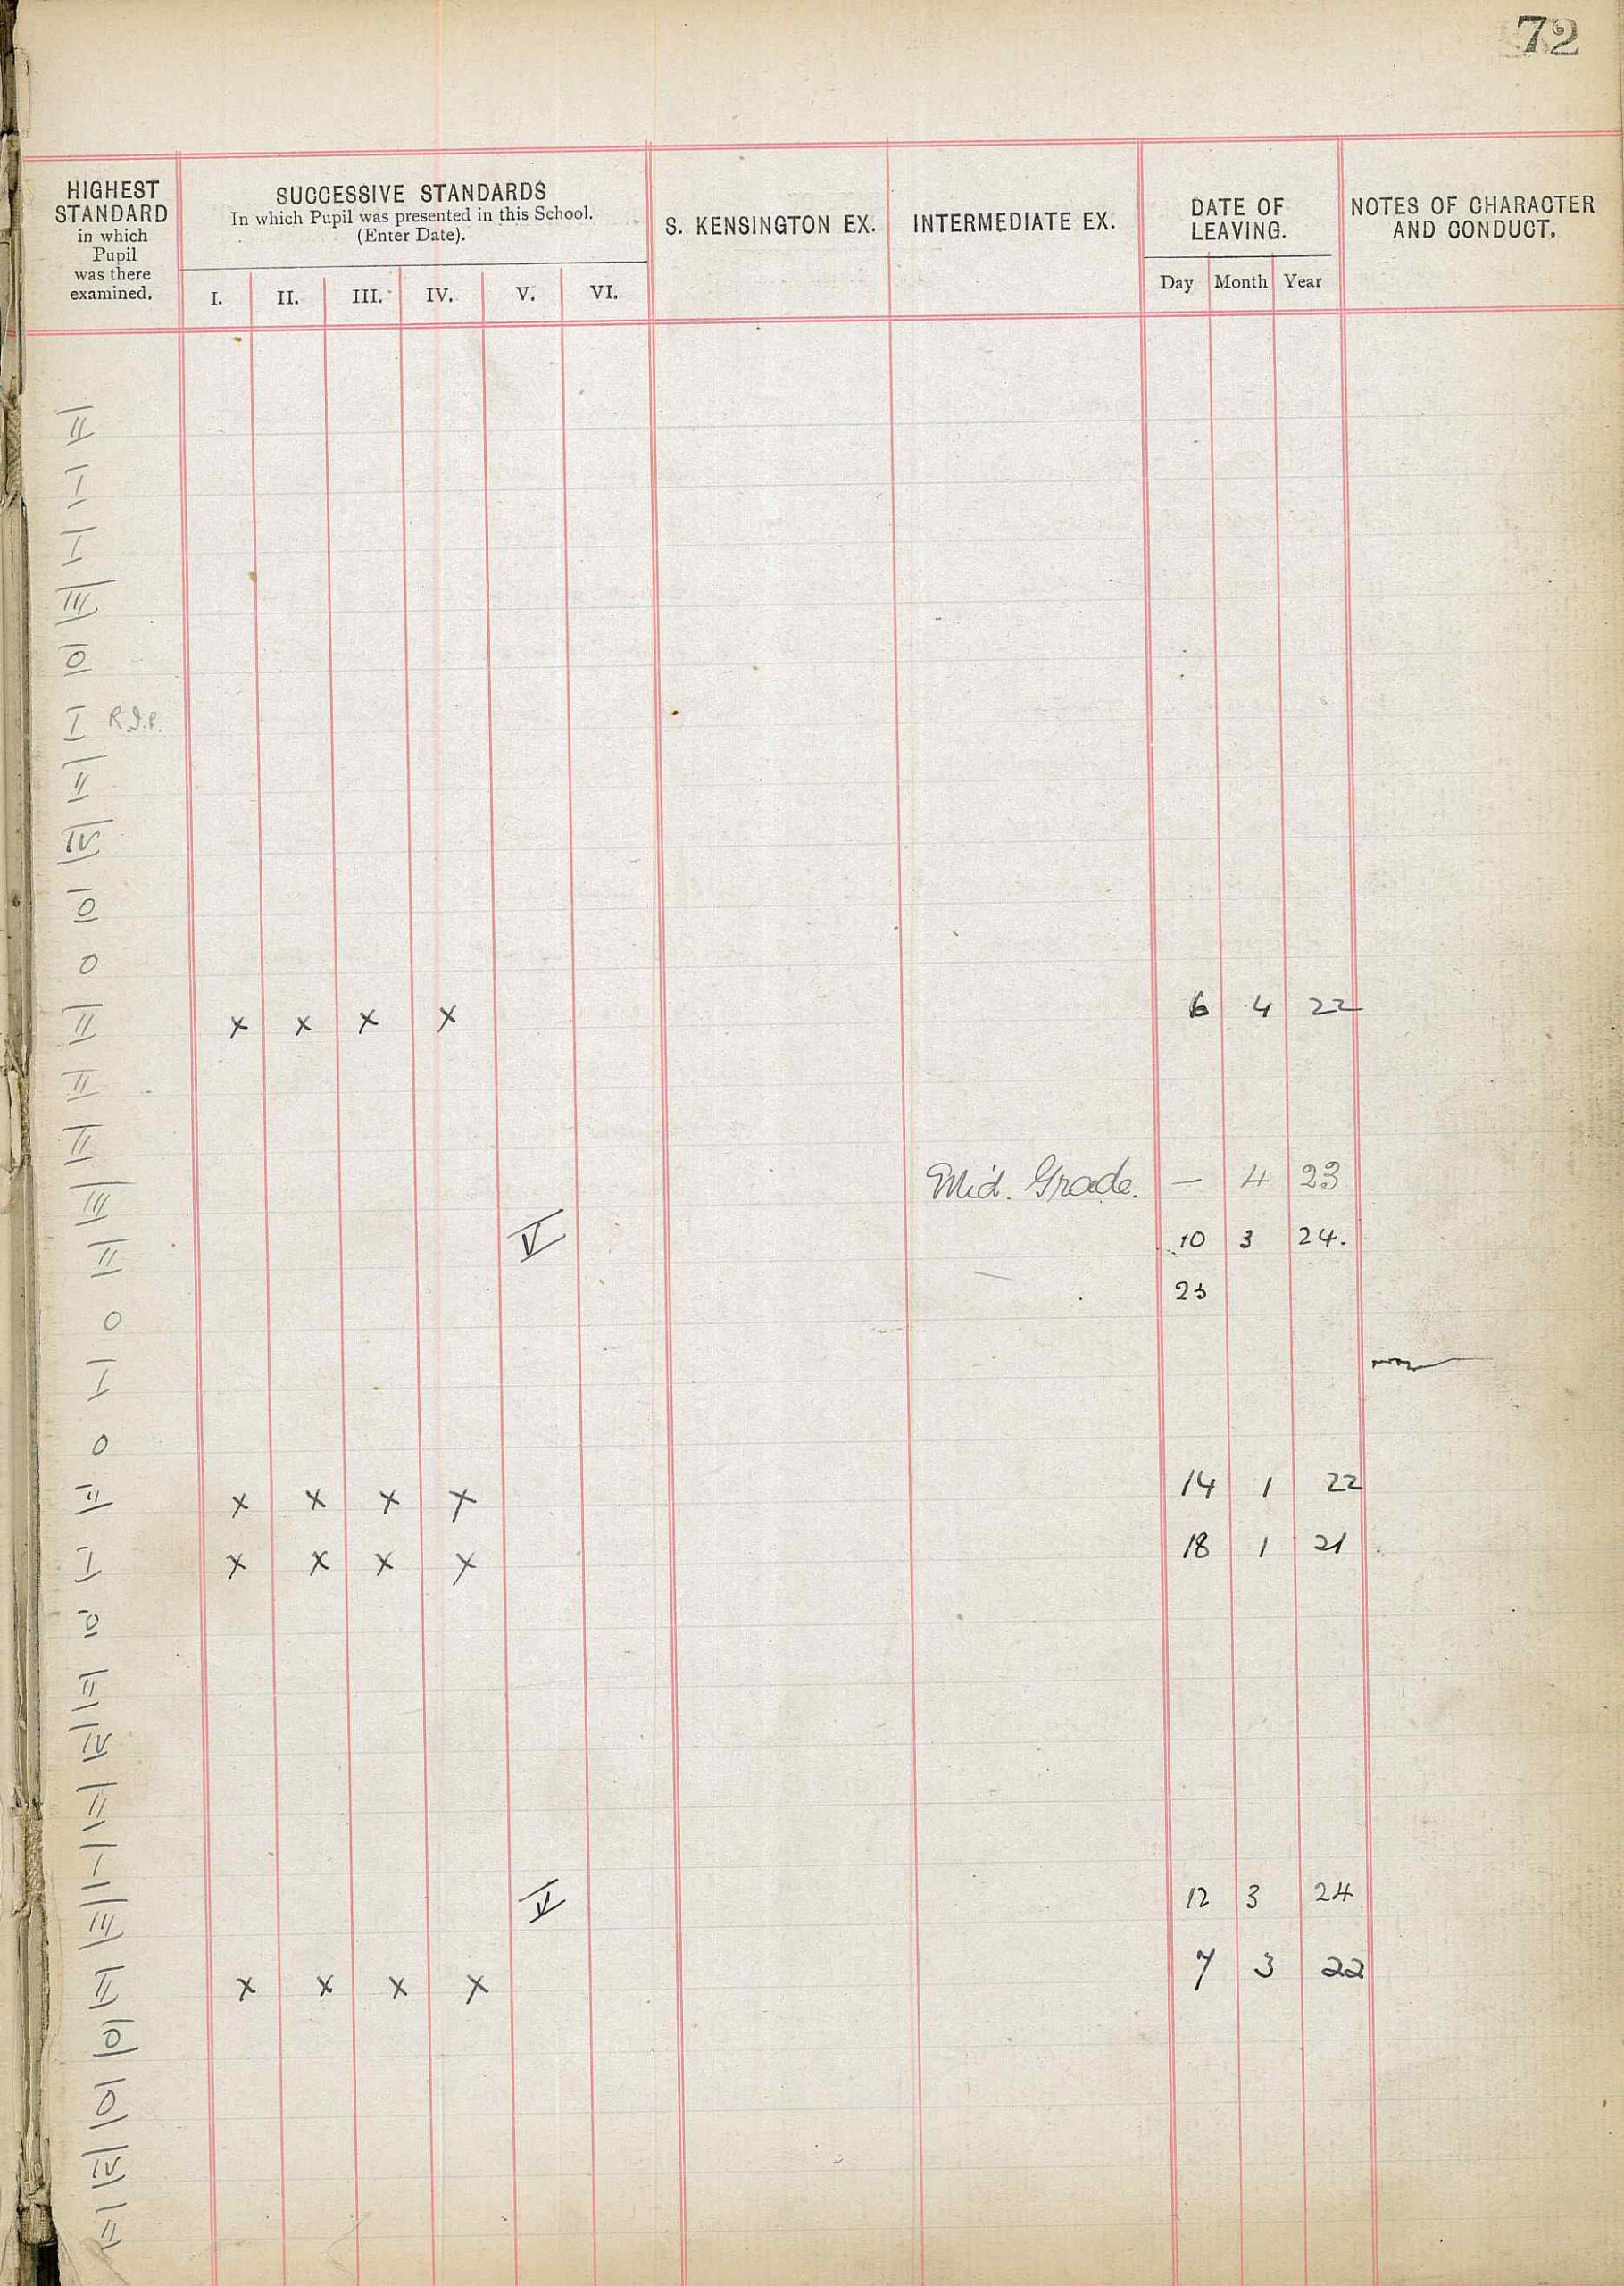 72
HIGHEST STANDARD in which Pupil was there examined.
SUCCESSIVE STANDARDS
In which Pupil was presented in this School.
(Enter Date).
I. II. III. IV. V. VI.
S. KENSINGTON EX.
INTERMEDIATE EX.
DATE OF LEAVING.
Day Month Year
NOTES OF CHARACTER AND CONDUCT.
II
I
I
III
0
I R.I.P.
II
IV
0
0
II x x x x 6 4 22
II
II
III Mid. Grade. — 4 23
II V 10 3 24.
0 23
I
0
II x x x x 14 1 22
I x x x x 18 1 21
0
II
IV
II
I
III V 12 3 24
II x x x x 7 3 22
0
0
IV
II